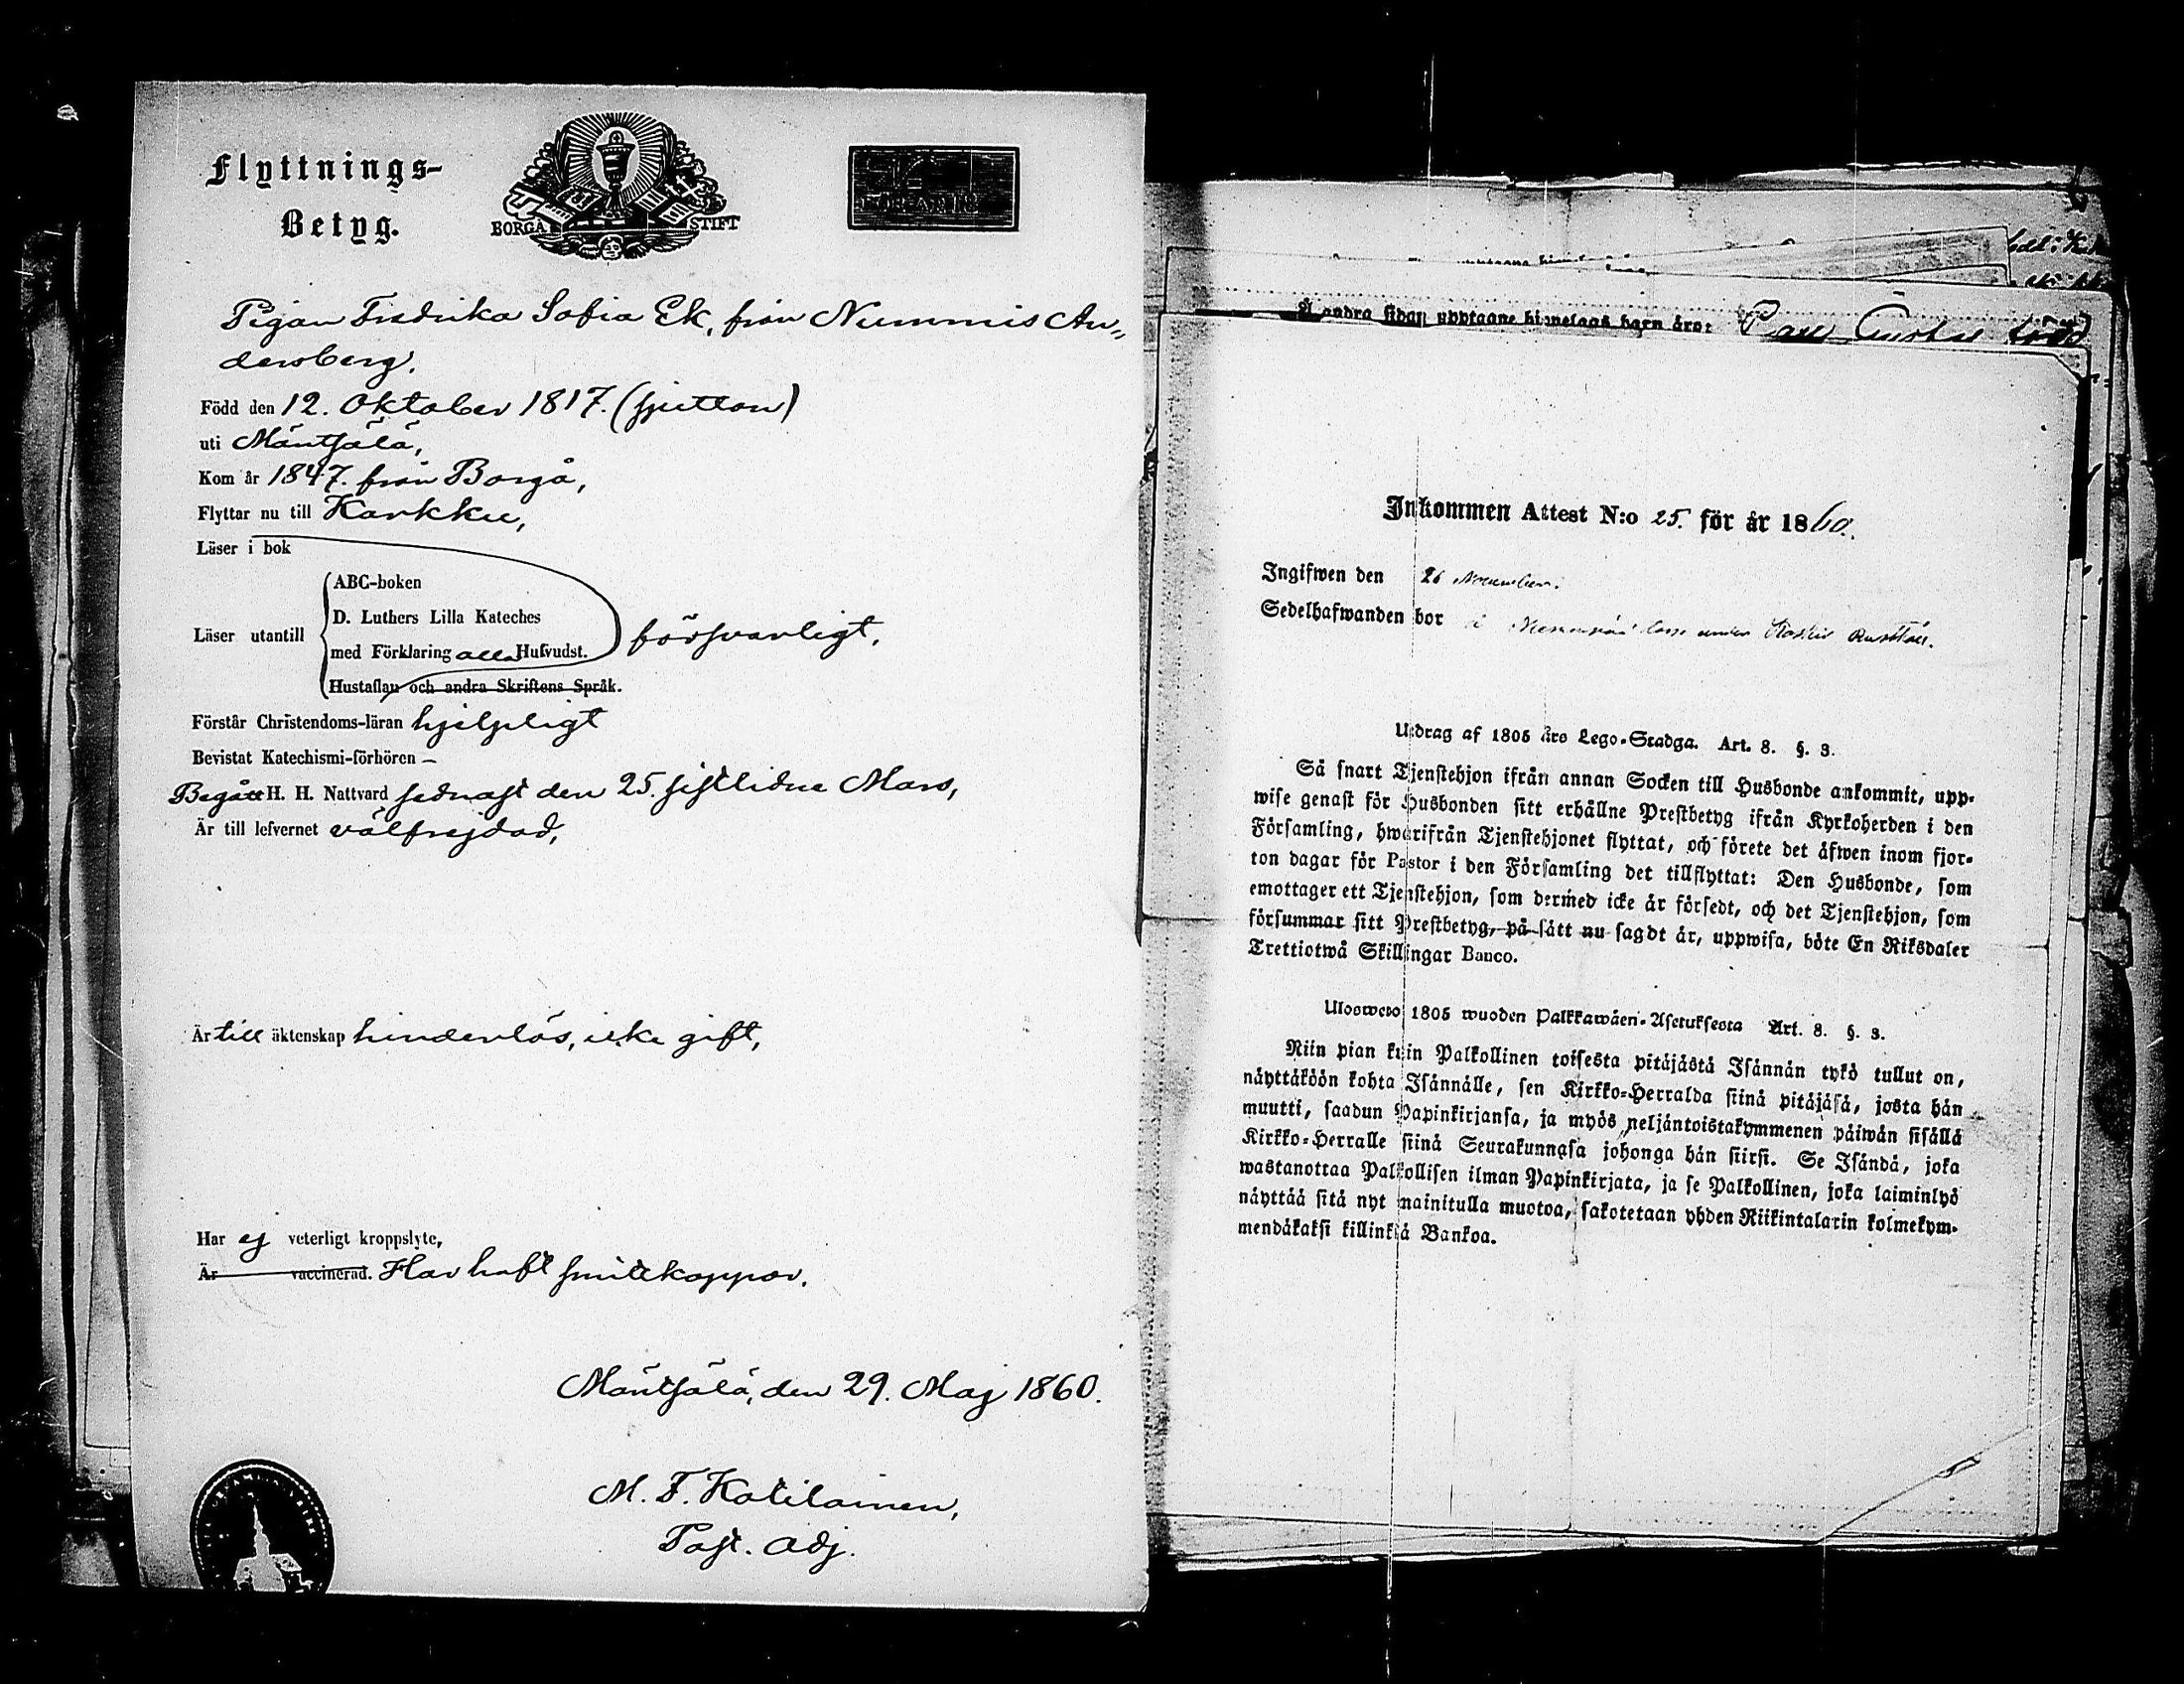 Flyttnings-
Betyg.
BORGÅ STIFT
Pigan Fredrika Sofia Ek, från Nummis An-
dersberg.
Född den 12. Oktober 1817. (sjutton)
uti Mäntsälä,
Kom år 1847. från Borgå,
Flyttar nu till Karkku,
Läser i bok
Läser utantill
ABC-boken
D. Luthers Lilla Kateches
med Förklaring alla Hufvudst.
Hustaflan och andra Skriftens Språk.
försvarligt,
Förstår Christendoms-läran hjelpligt
Bevistat Katechismi-förhören –
Begått H. H. Nattvard sednast den 25. sistlidne Mars,
Är till lefvernet välfrejdad,
Är till äktenskap hinderlös, icke gift,
Har ej veterligt kroppslyte,
Är vaccinerad. Har haft smittkoppor.
Mäntsälä, den 29. Maj 1860.
M. F. Kotilainen,
Past. adj.
Å andra sidan upptagne hionelags barn äro:
Inkommen Attest N:o 25. för år 1860.
Ingifwen den 26 November.
Sedelhafwanden bor i under
Utdrag af 1805 års Lego-Stadga. Art. 8. §. 3.
Så snart Tjenstehjon ifrån annan Socken till Husbonde ankommit, upp-
wise genast för Husbonden sitt erhållne Prestbetyg ifrån Kyrkoherden i den
Församling, hwarifrån Tjenstehjonet flyttat, och förete det äfwen inom fjor-
ton dagar för Pastor i den Församling det tillflyttat: Den Husbonde, som
emottager ett Tjenstehjon, som dermed icke är försedt, och det Tjenstehjon, som
försummar sitt Prestbetyg, på sätt nu sagdt är, uppwisa, böte En Riksdaler
Trettiotwå Skillingar Banco.
Uloswero 1805 wuoden Palkkawäen-Asetuksesta Art. 8. §. 3.
Niin pian kuin Palkollinen toisesta pitäjästä Isännän tykö tullut on,
näyttäköön kohta Isännälle, sen Kirkko-Herralda siinä pitäjäsä, josta hän
muutti, saadun Papinkirjansa, ja myös neljäntoistakymmenen päiwän sisällä
Kirkko-Herralle siinä Seurakunnasa johonga hän siirsi. Se Isändä, joka
wastanottaa Palkollisen ilman Papinkirjata, ja se Palkollinen, joka laiminlyö
näyttää sitä nyt mainitulla muotoa, sakotetaan yhden Riikintalarin kolmekym-
mendäkaksi killinkiä Bankoa.